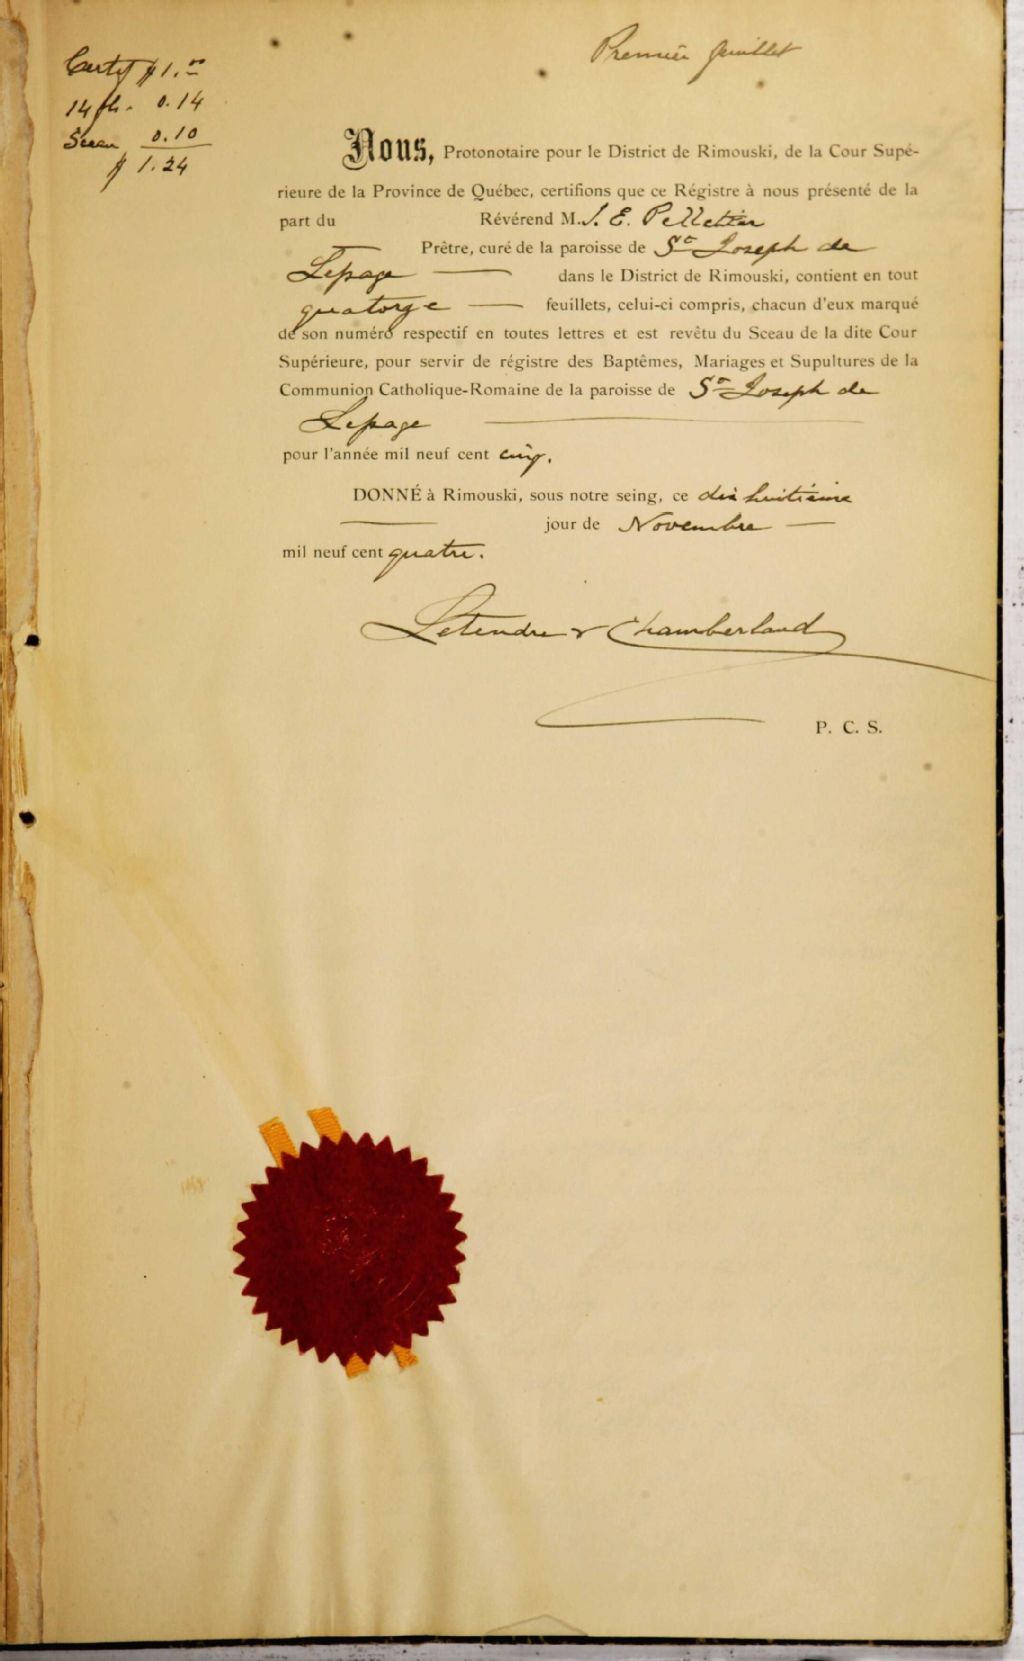 Premier feuillet
Certif $1.00
14 fts. 0.14
Sceau 0.10
$ 1.24
Nous, Protonotaire pour le District de Rimouski, de la Cour Supé-
rieure de la Province de Québec, certifions que ce Régistre à nous présenté de la
part du Révérend M. J. E. Pelletier
Prêtre, curé de la paroisse de St Joseph de
Lepage — dans le District de Rimouski, contient en tout
quatorze — feuillets, celui-ci compris, chacun d'eux marqué
de son numéro respectif en toutes lettres et est revêtu du Sceau de la dite Cour
Supérieure, pour servir de régistre des Baptêmes, Mariages et Supultures de la
Communion Catholique-Romaine de la paroisse de St Joseph de
Lepage —
pour l'année mil neuf cent cinq.
DONNÉ à Rimouski, sous notre seing, ce dix huitième
— jour de Novembre —
mil neuf cent quatre.
Letendre & Chamberland
P. C. S.